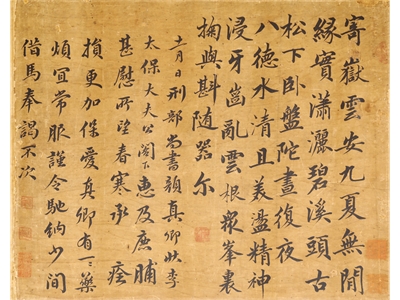 寄嶽雲安九夏無閒
緣實瀟灑碧溪頭古
松下卧盤陀晝復夜
八德水清且美盪精神
浸牙齒亂雲根衆峯裏
掬與斟随器尔
月日刑部尚書顏真卿狀李
太保大夫公閤下惠及鹿脯
甚慰所望春寒承痊
損更加保愛真卿有藥
煩宜常服謹令馳納少間
借馬奉謁不次